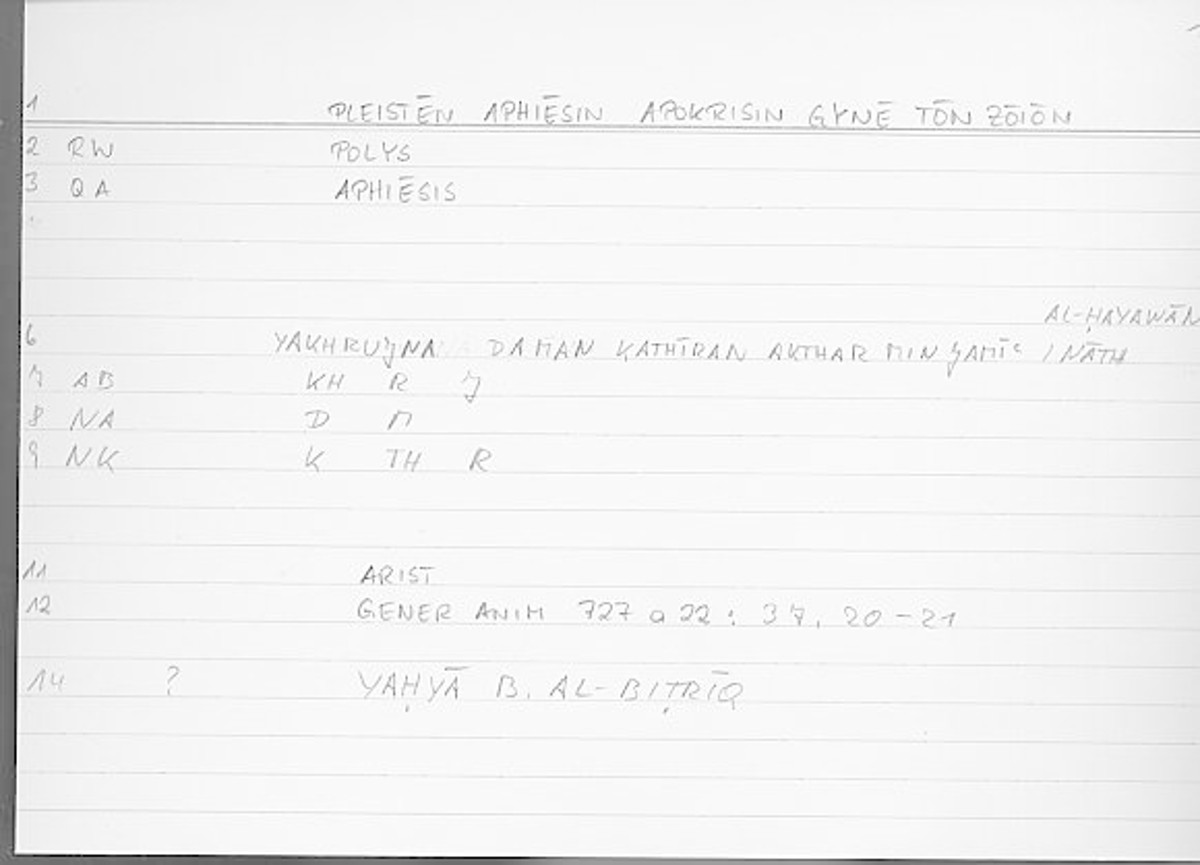 1 PLEISTĒN APHIĒSIN APOKRISIN GYNĒ TŌN ZŌIŌN
2 RW POLYS
3 QA APHIĒSIS
AL-ḤAYAWĀN
6 YAKHRUǦNA DAMAN KATHĪRAN AKTHAR MIN ǦAMĪʿ INĀTH
7 AB KH R Ǧ
8 NA D M
9 NK K TH R
11 ARIST
12 GENER ANIM 727 a 22 : 37, 20-21
14 ? YAḤYĀ B. AL-BIṬRĪQ